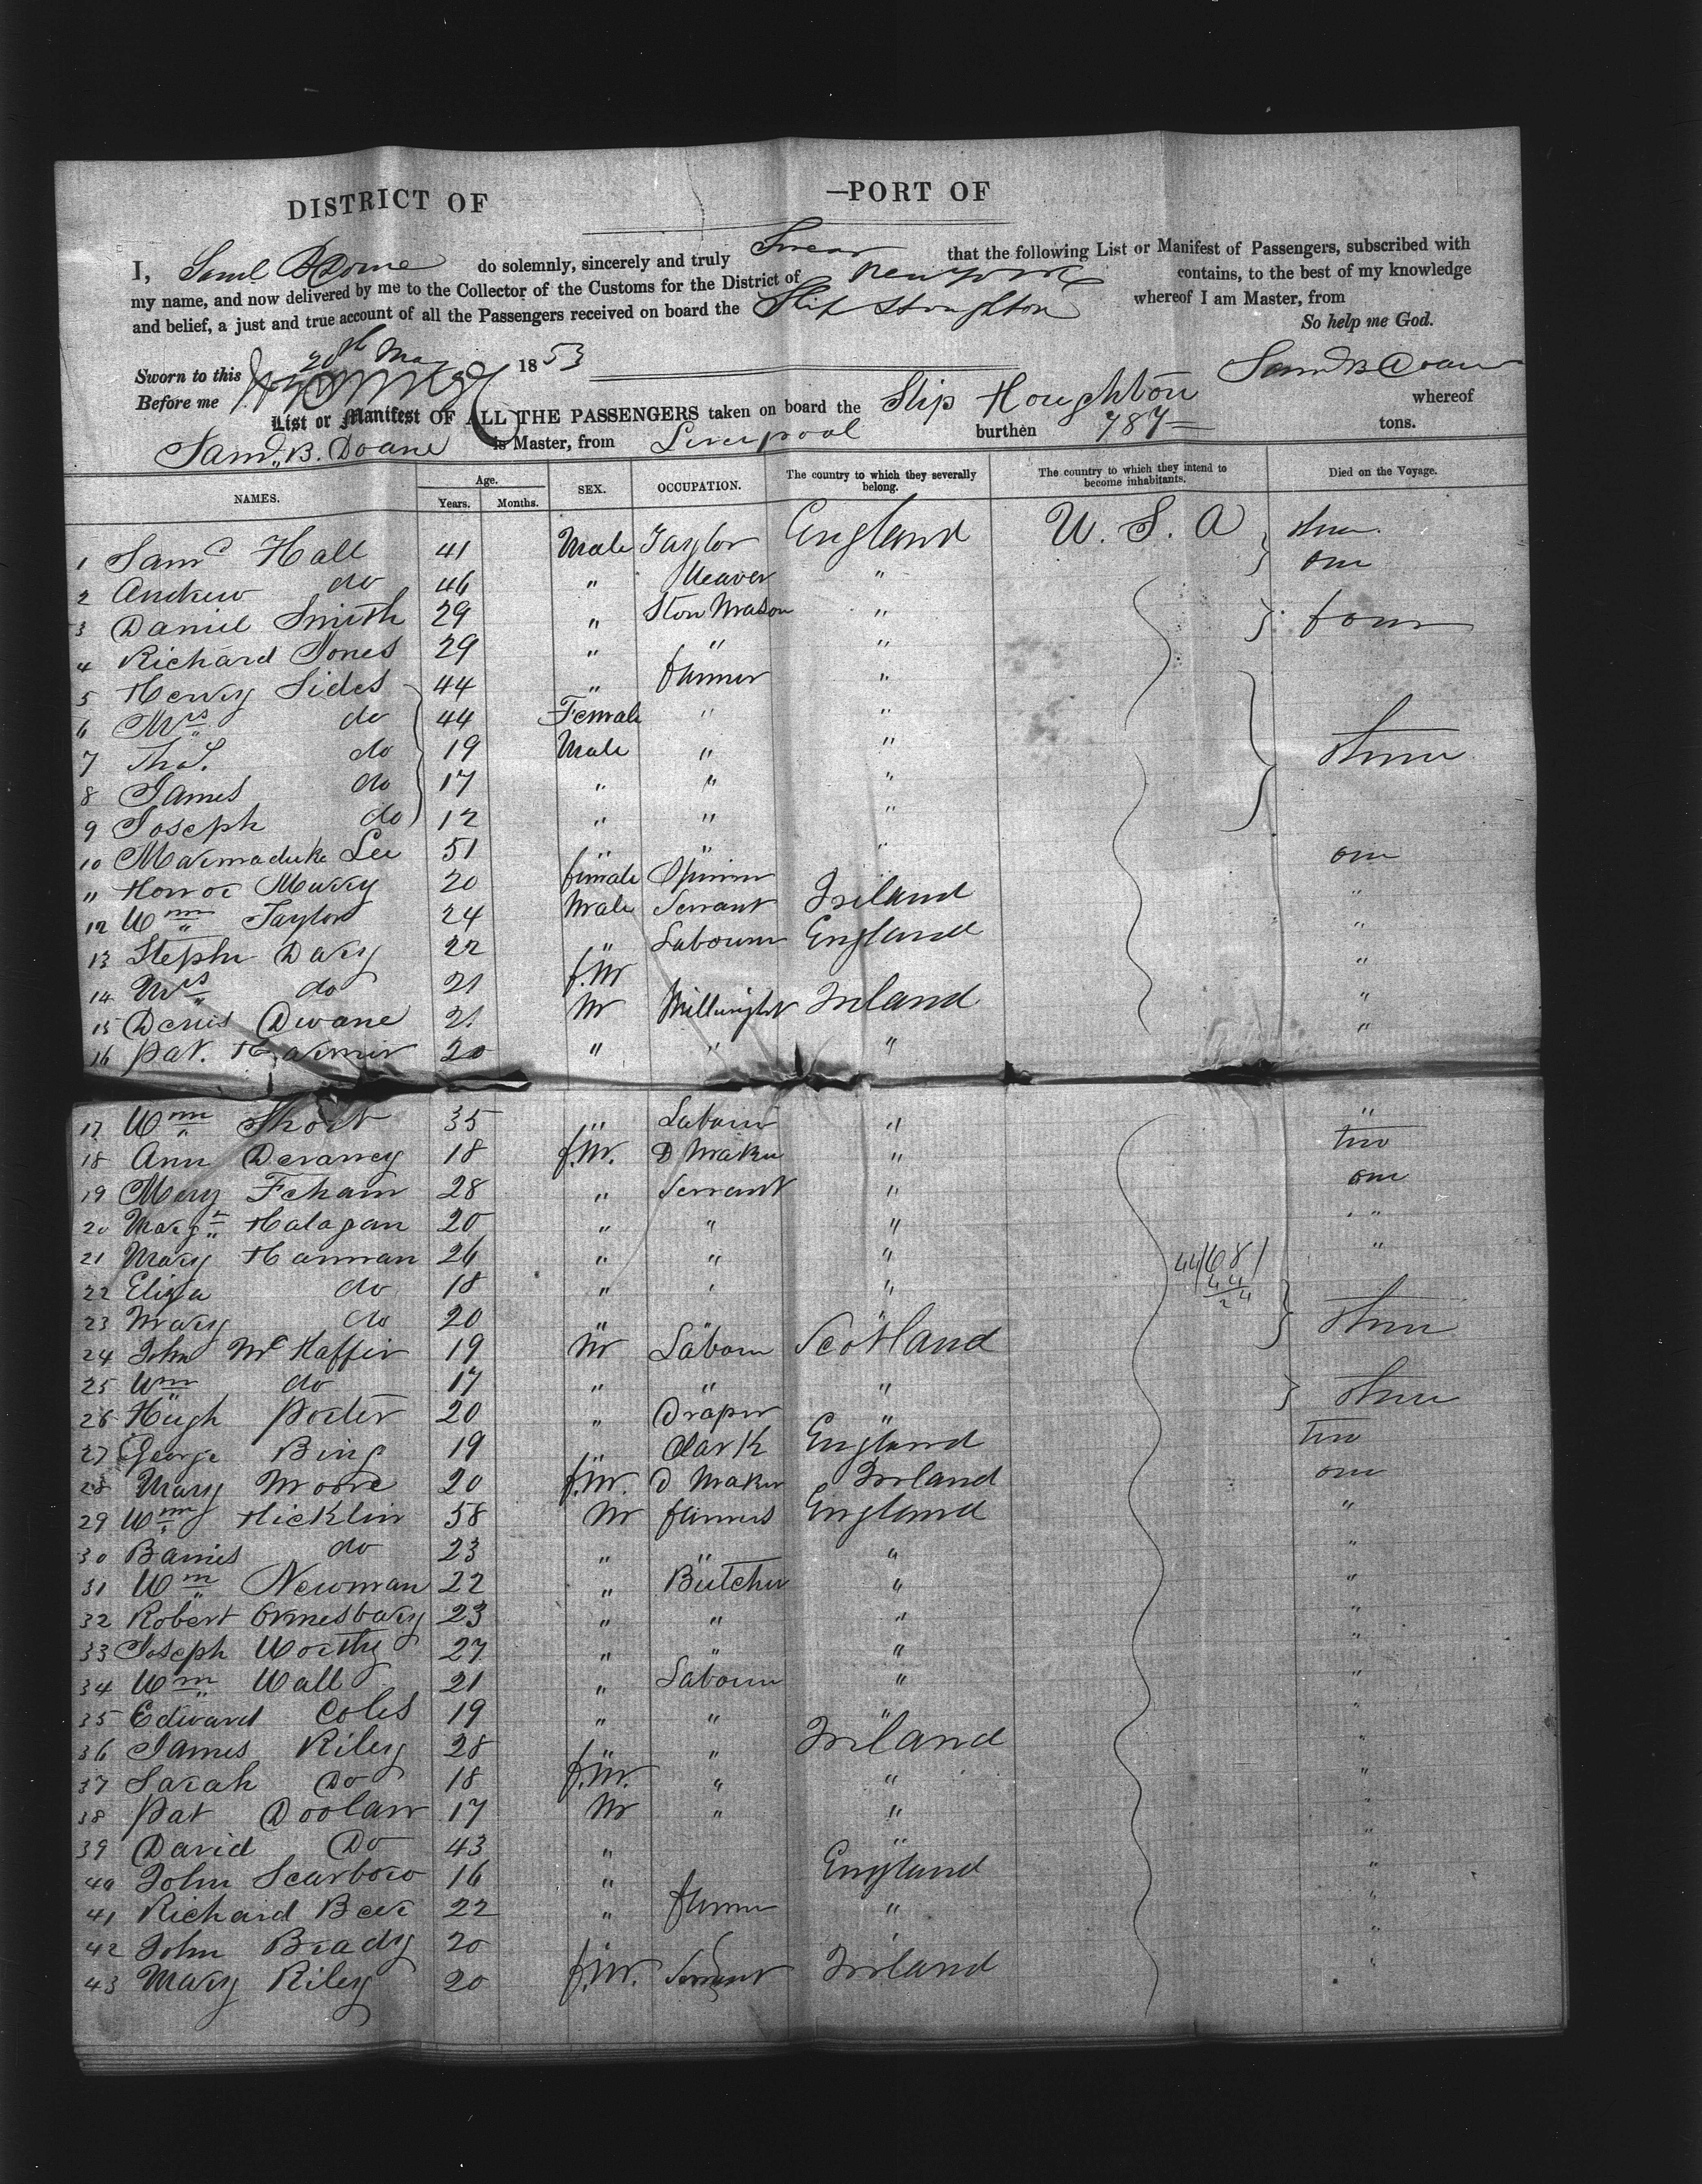 DISTRICT OF —PORT OF
I, Saml B Doane do solemnly, sincerely and truly Swear that the following List or Manifest of Passengers, subscribed with
my name, and now delivered by me to the Collector of the Customs for the District of New york contains, to the best of my knowledge
and belief, a just and true account of all the Passengers received on board the Ship Houghton whereof I am Master, from
So help me God.
Sworn to this 20th May 1853
Before me Saml B Doane
List or Manifest OF ALL THE PASSENGERS taken on board the Ship Houghton whereof
Saml. B. Doane is Master, from Liverpool burthen 787 tons.
NAMES. Age. Years. Months. SEX. OCCUPATION. The country to which they severally belong. The country to which they intend to become inhabitants. Died on the Voyage.
1 Saml Hall 41 Male Taylor England U. S. A
2 Andrew do 46 " Weaver " one
3 Daniel Smith 29 " Ston Mason " four
4 Richard Jones 29 " " "
5 Henry Sides 44 " farmer "
6 Mrs do 44 Female " "
7 Thos. do 19 Male " "
8 James do 17 " " "
9 Joseph do 12 " " "
10 Marmaduke Lee 51 " " " one
" 20 female Spinner "
12 Wm Taylor 24 Male Servant Ireland "
13 Stephn Davy 22 " Labourer England
14 Mrs do 21 f.M "
15 Denis Dwane 21 M Millwright Ireland "
16 Pat. 20 " " " "
17 Wm Short 35 " Labourer " "
18 Ann 18 f.M. D Maker " two
19 Mary 28 " Servant " one
20 Margt Halagan 20 " " " "
21 Mary Hannan 26 " " " "
22 Eliza do 18 " " "
23 Mary do 20 " "
24 John Mc Haffir 19 M Labour Scotland
25 Wm do 17 " " "
26 Hugh Porter 20 " Draper "
27 George Bing 19 " Clark England two
28 Mary Moore 20 f.M. D Maker Ireland one
29 Wm Hicklin 58 M farmers England "
30 do 23 " " " "
31 Wm Newman 22 " Butcher " "
32 Robert 23 " " " "
33 Joseph Worthy 27 " " " "
34 Wm Wall 21 " Labourer " "
35 Edward Coles 19 " " " "
36 James Riley 28 " " Ireland "
37 Sarah Do 18 f.M. " " "
38 Pat Doolan 17 M " " "
39 David Do 43 " " "
40 John Scarboro 16 " England "
41 Richard 22 " farmer " "
42 John Brady 20 " "
43 Mary Riley 20 f.M. Servant Ireland "